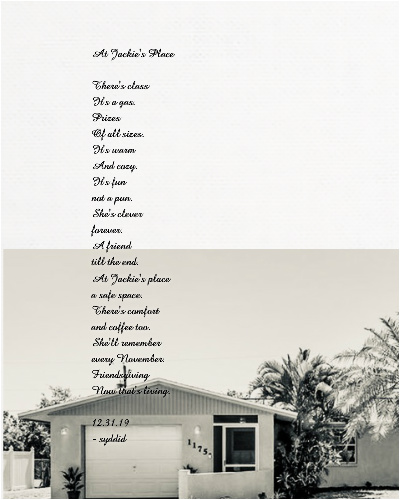 At Jackie's Place
There's class
It's a gas.
Prizes
Of all sizes.
It's warm
And cozy.
It's fun
not a pun.
She's clever
forever.
A friend
till the end.
At Jackie's place
a safe space.
There's comfort
and coffee too.
She'll remember
every November.
Friendsgiving
Now that's living.
12.31.19
- syddid
1175-